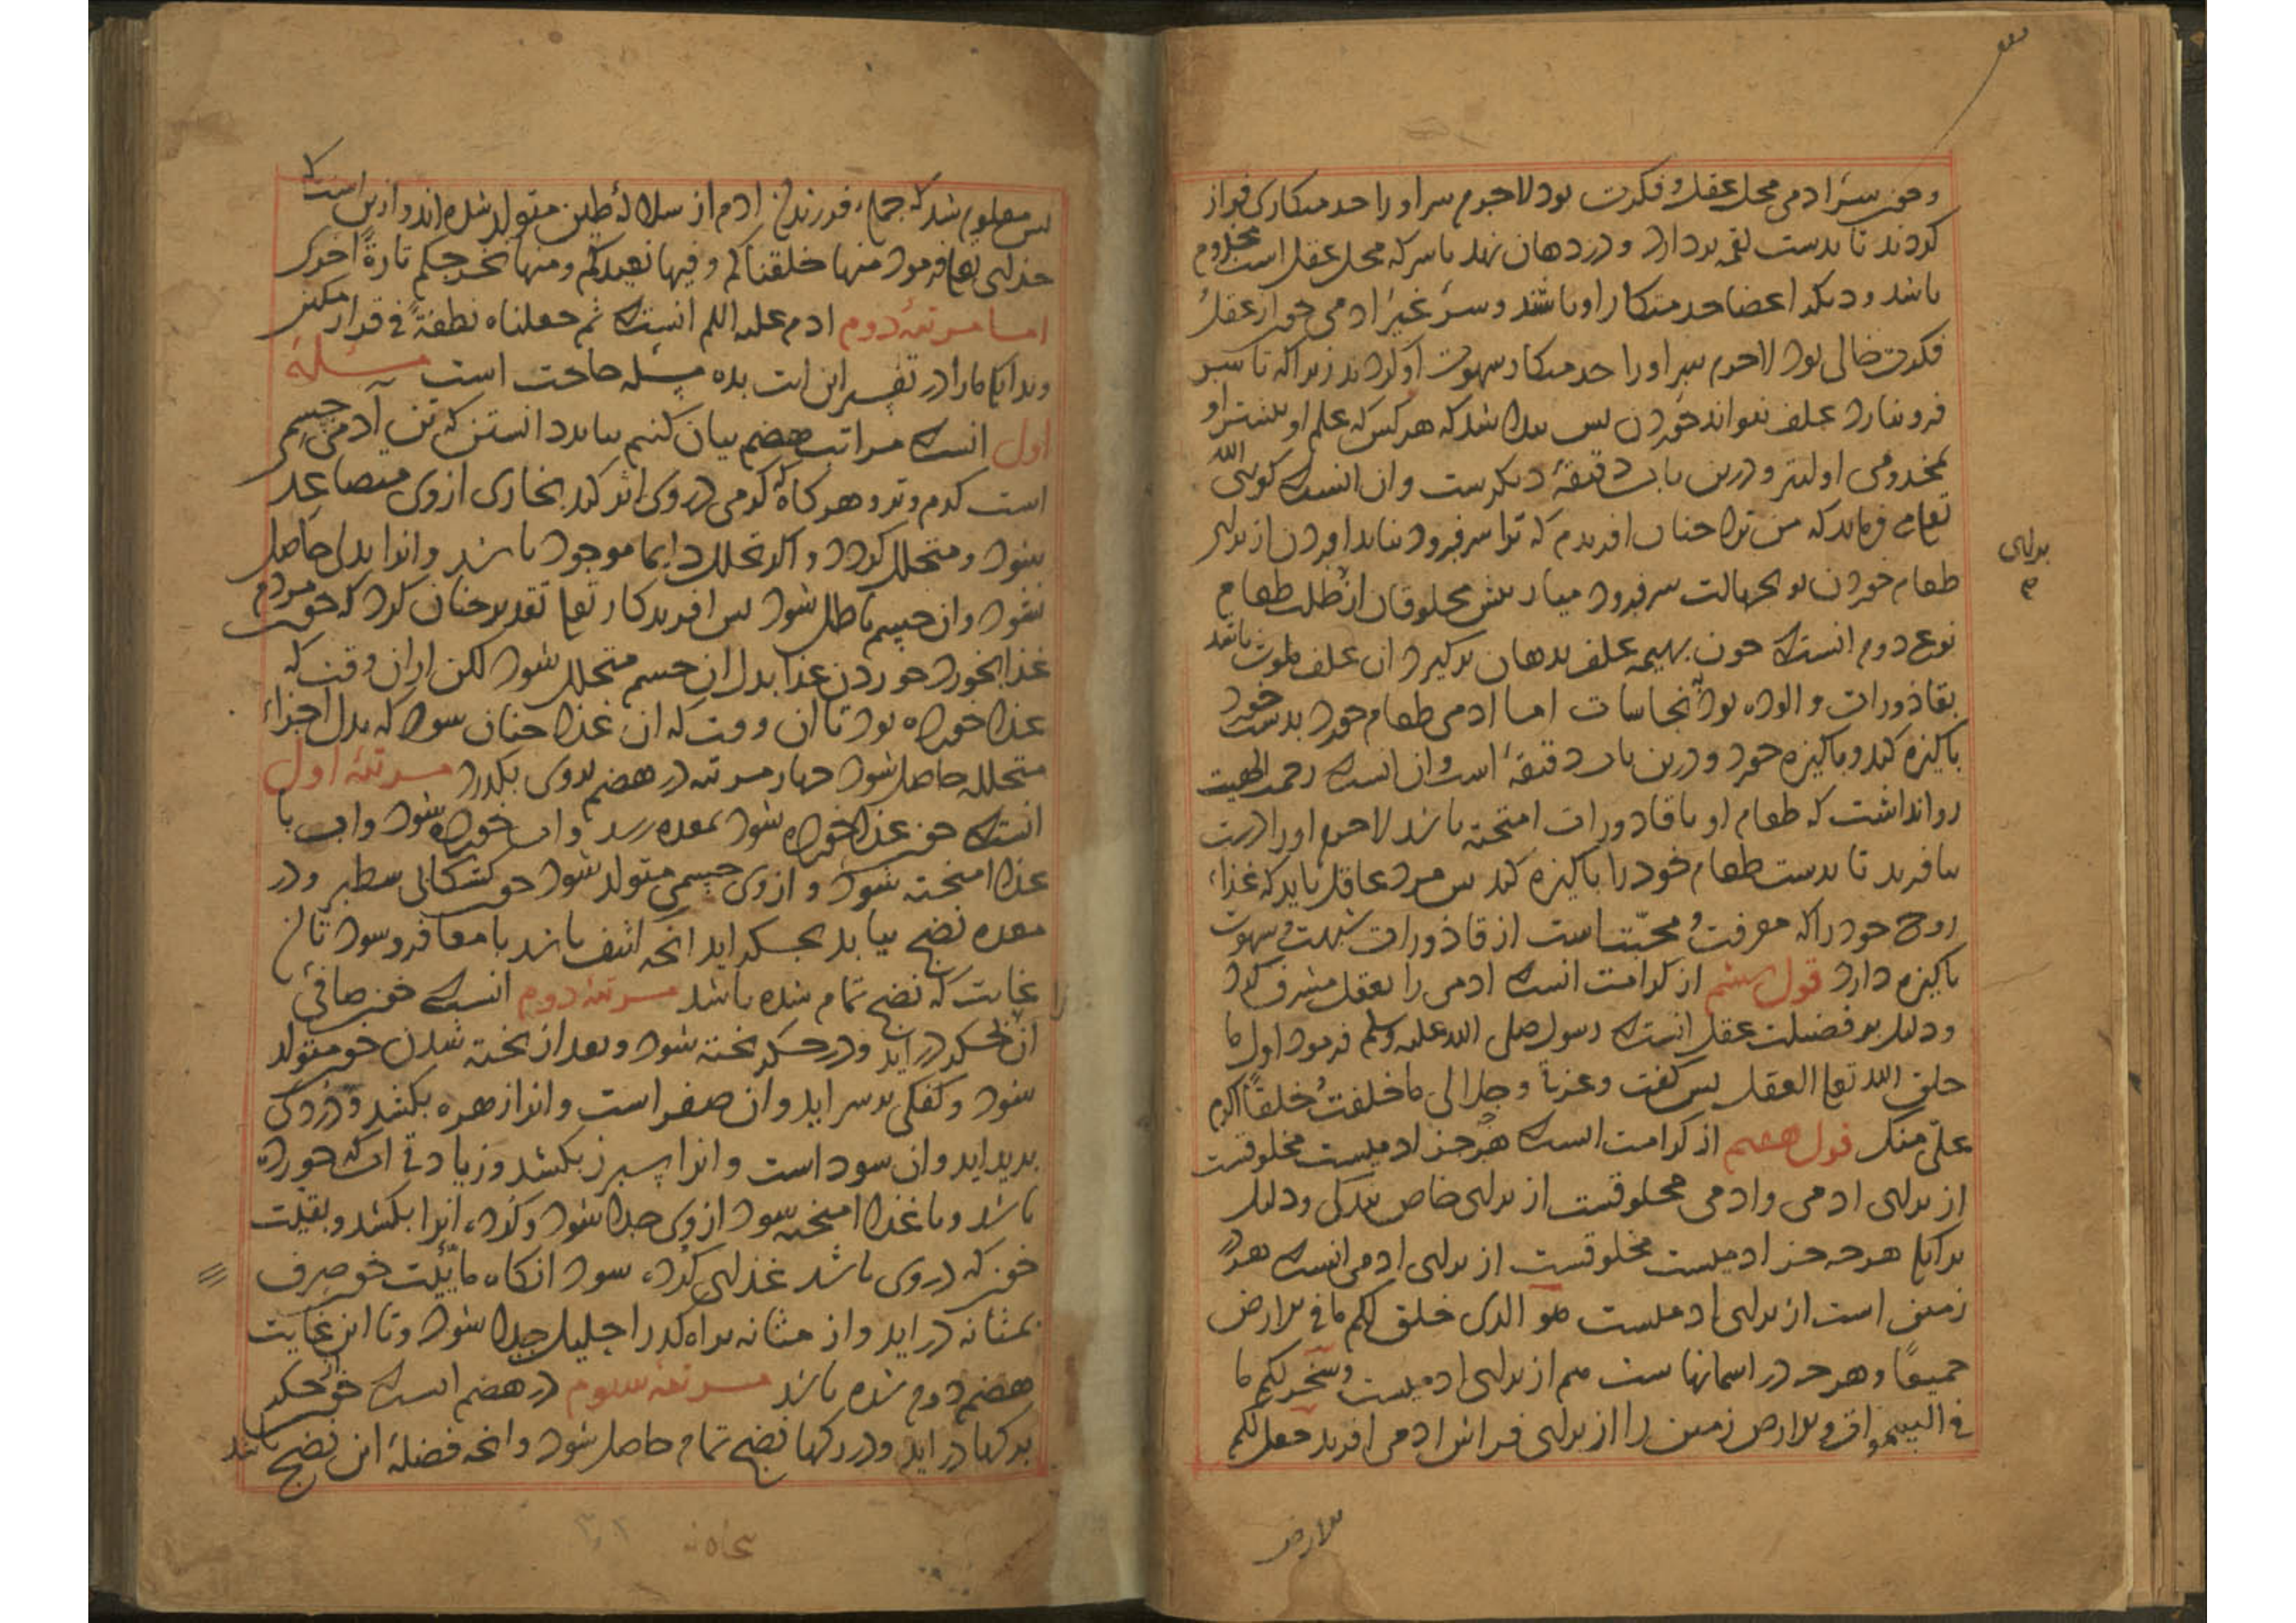 وچون سر آدمی محل عقل و فکرت بود لاجرم سر او را خدمتکاری فراز
کردند تا بدست لقمه بردارد و در دهان نهد تا سر که محل عقل است مخدوم
باشد و دیگر اعضا خدمتکار او باشند و سر غیر ادمی چون از عقل
فکرت خالی بود لاجرم سر او را خدمتکار شهوت او کردند زیرا که تا سر
فرو نیارد علف نتواند خوردن پس پیدا شد که هر کس که علم او بیشتر او
بمخدومی اولیتر و درین باب دقیقهٔ دیگرست وان انست که گوئی الله
تعالی می فرماید که من ترا چنان افریدم که ترا سر فرود نباید اوردن از برای
طعام خوردن تو بجهالت سر فرود میار پیش مخلوقان از طلب طعام
نوع دوم انست که چون بهیمه علف بدهان برگیرد ان علف ملوث باشد
بقاذورات و الوده بود بنجاسات اما ادمی طعام خود بدست خود
پاکیزه کند و پاکیزه خورد و درین باب دقیقهٔ است وان انست که رحمت الهیت
روا نداشت که طعام او با قاذورات امیخته باشد لاجرم او را دست
بیافرید تا بدست طعام خود را پاکیزه کند پس مرد عاقل باید که غذاء
روح خود را که معرفت و محبتست از قاذورات شبهت و شهوت
پاکیزه دارد قول ششم از کرامت انست که ادمی را بعقل مشرف کرد
ودلیل بر فضیلت عقل انست که رسول صلی الله علیه وسلم فرمود اول ما
خلق الله تعالی العقل پس گفت وعزتی وجلالی ما خلقت خلقا اکرم
علیّ منک قول هفتم از کرامت انست که هرچه جز ادمیست مخلوقست
از برای ادمی وادمی مخلوقست از برای خاص بندگی ودلیل
برانک هرچه جز ادمیست مخلوقست از برای ادمی انست که هرچه در
زمین است از برای ادمیست هو الذی خلق لکم ما فی الارض
جمیعًا وهرچه در اسمانهاست هم از برای ادمیست وسخر لکم ما
فی السموات والارض زمین را از برای فراش ادمی افرید جعل لکم
الارض
برای
پس معلوم شد که جملهٔ فرزندان ادم از سلالهٔ طین متولد شده اند و ازین است که
خدای تعالی فرمود منها خلقناکم وفیها نعیدکم ومنها نخرجکم تارةً اخری
اما مرتبهٔ دوم ادم علیه السلم انست که ثم جعلناه نطفةً فی قرار مکین
وبدانک ما را در تفسیر این ایت بده مسئله حاجت است مسئلهٔ
اول انست که مراتب هضم بیان کنیم بباید دانستن که تن آدمی جسمی
است گرم وتر وهرگاه که گرمی در وی اثر کند بخاری از وی متصاعد
شود و متحلل گردد واگر تحلل دایما موجود باشد وانرا بدل حاصل
نشود وان جسم باطل شود پس افریدگار تعالی تقدیر چنان کرد که چون مردم
غذا بخورد خوردن غذا بدل ان جسم متحلل شود لکن از ان وقت که
غذا خورده بود تا ان وقت که ان غذا چنان شود که بدل اجزاء
متحلله حاصل شود چهار مرتبه در هضم بروی بگذرد مرتبهٔ اول
انست که چون غذا خورده شود بمعده رسد واب خورده شود واب با
غذا امیخته شود و از وی جسمی متولد شود چون کشکابی سطبر ودر
معده نضج بیابد بجگر اید انچه اثیف باشد بامعا فرو شود تا ان
غایت که نضج تمام شده باشد مرتبهٔ دوم انست که چون صافیٔ
ان بجگر در اید ودر جگر پخته شود وبعد از پخته شدن خون متولد
شود وکفکی بر سر اید وان صفراست وانرا زهره بکشد ودردی
پدید اید وان سوداست وانرا سپرز بکشد وزیادتی اب که خورده
باشد وبا غذا امیخته شود از وی جدا شود وکرده انرا بکشد وبقیت
خون که در وی باشد غذای کرده شود انگاه مائیت خون صرف
بمثانه در اید واز مثانه براه گذر احلیل جدا شود وتا این غایت
هضم دوم شده باشد مرتبهٔ سوم در هضم انست که خون از جگر
برگها در اید ودر رگها نضج تمام حاصل شود وانچه فضلهٔ این نضج باشد